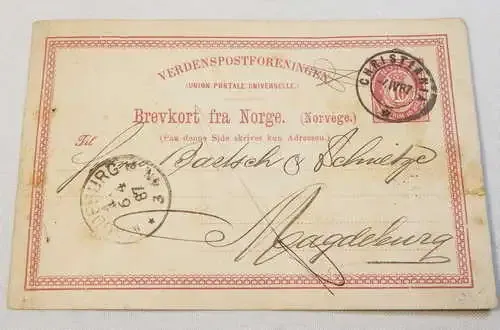 VERDENSPOSTFORENINGEN
(UNION POSTALE UNIVERSELLE.)
CHRISTIANIA
7 IV 87
Brevkort fra Norge. (Norvège.)
(Paa denne Side skrives kun Adressen.)
Til
Bartsch &
MAGDEBURG
Magdeburg